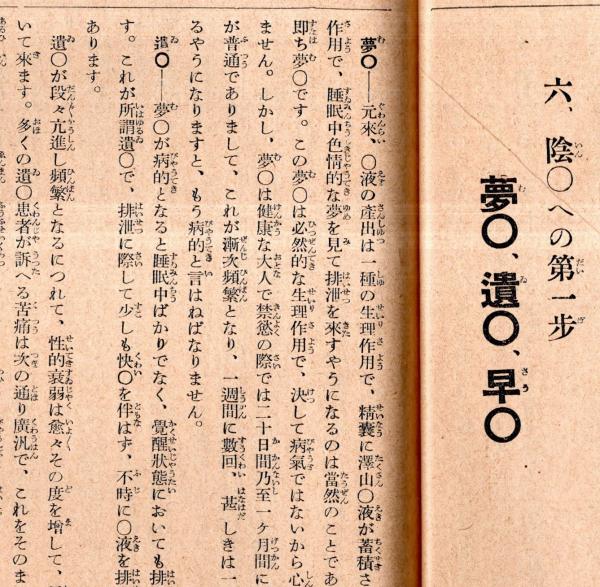 六、陰〇への第一步
夢〇、遺〇、早〇
夢〇――元來、〇液の產出は一種の生理作用で、精囊に澤山〇液が蓄積さ
作用で、睡眠中色情的な夢を見て排泄を來すやうになるのは當然のことであ
卽ち夢〇です。この夢〇は必然的な生理作用で、決して病氣ではないから心
ません。しかし、夢〇は健康な大人で禁慾の際では二十日間乃至一ケ月間に
が普通でありまして、これが漸次頻繁となり、一週間に數回、甚しきは一
るやうになりますと、もう病的と言はねばなりません。
遺〇――夢〇が病的となると睡眠中ばかりでなく、覺醒狀態においても排
す。これが所謂遺〇で、排泄に際して少しも快〇を伴はず、不時に〇液を排
あります。
遺〇が段々亢進し頻繁となるにつれて、性的衰弱は愈々その度を增して、
いて來ます。多くの遺〇患者が訴へる苦痛は次の通り廣汎で、これをそのま